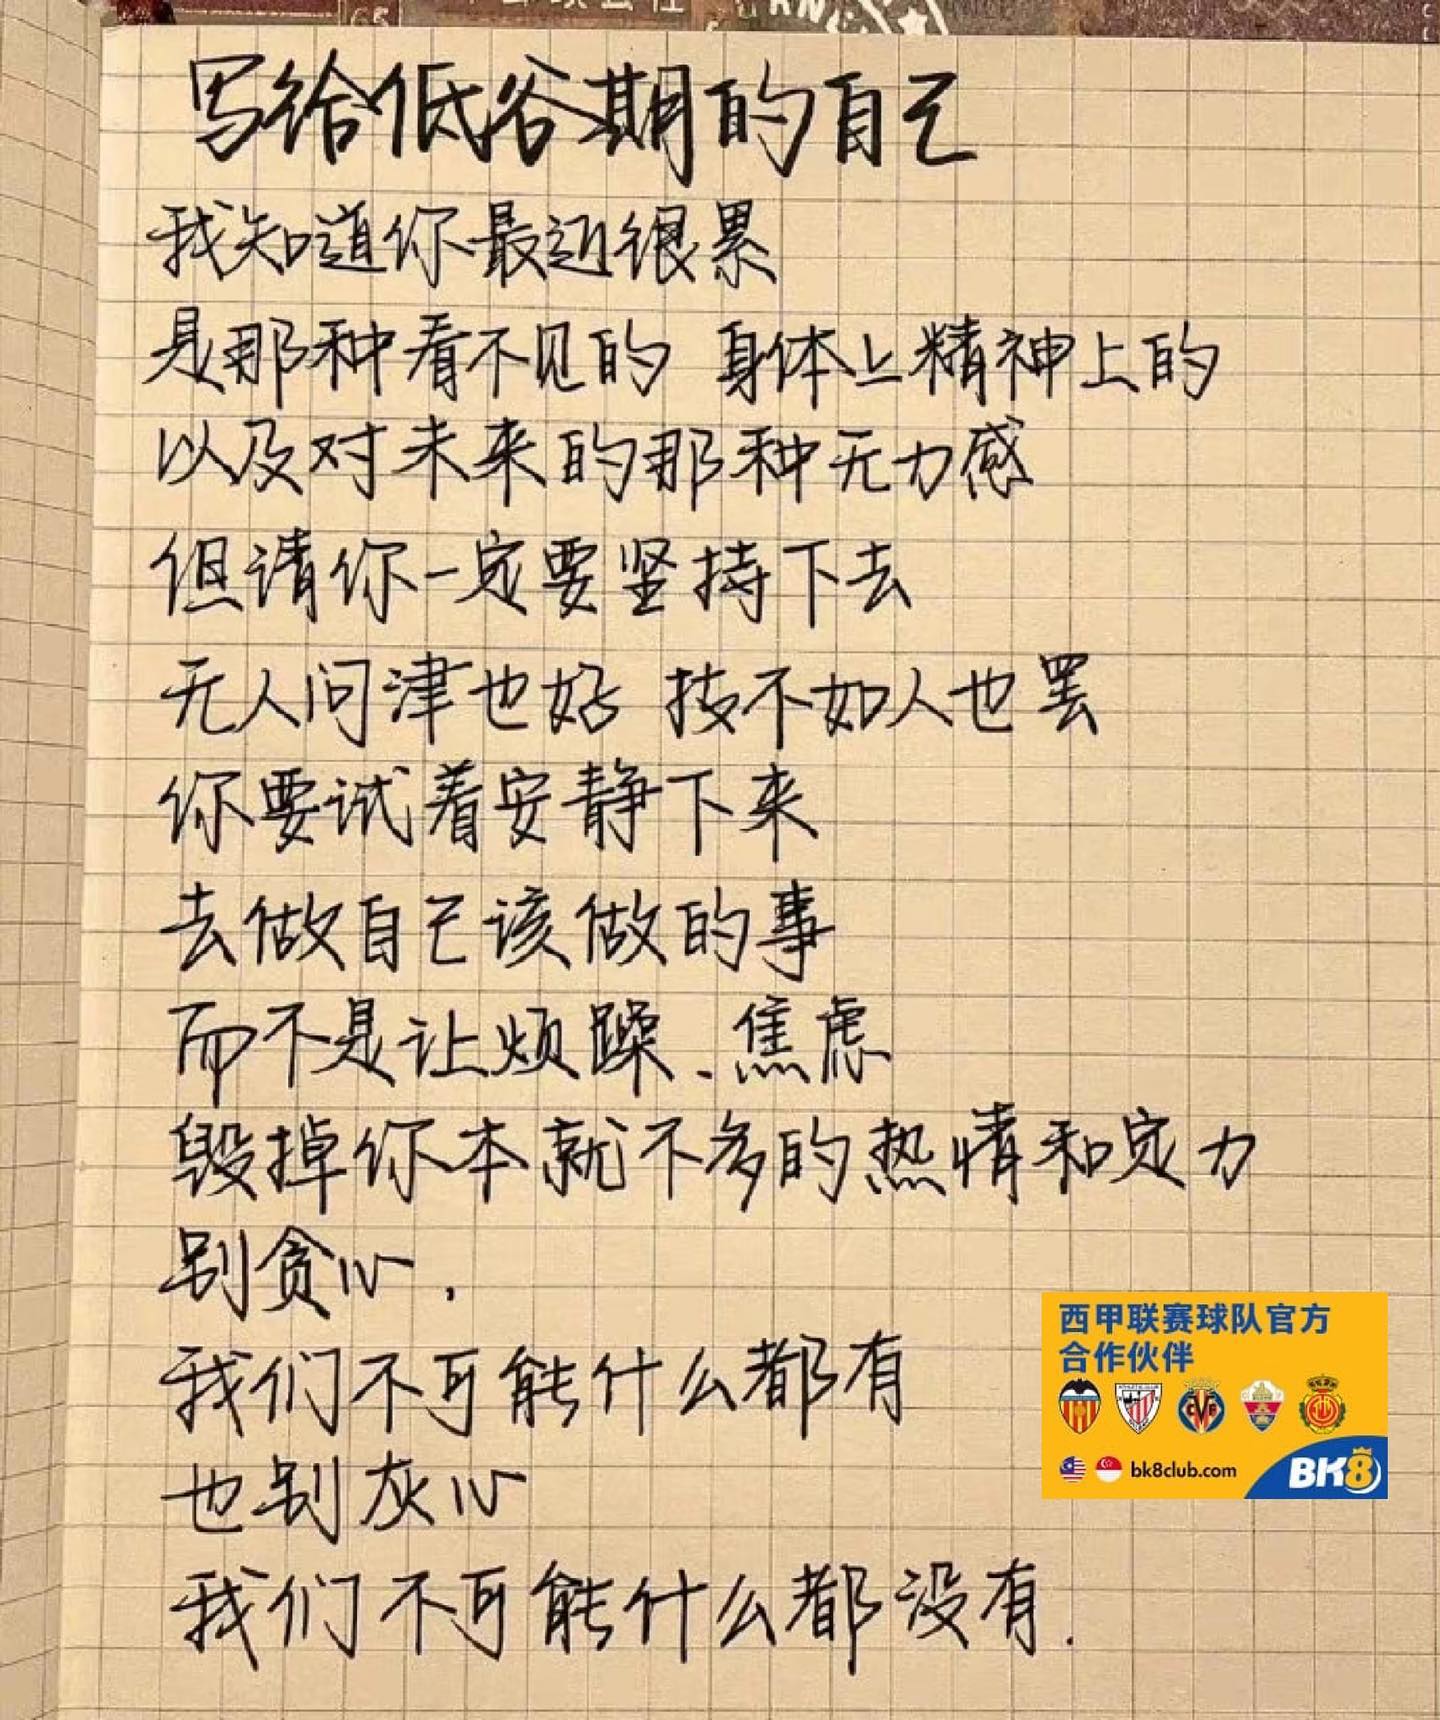 写给低谷期的自己
我知道你最近很累
是那种看不见的 身体上精神上的
以及对未来的那种无力感
但请你一定要坚持下去
无人问津也好 技不如人也罢
你要试着安静下来
去做自己该做的事
而不是让烦躁、焦虑
毁掉你本就不多的热情和定力
别贪心,
我们不可能什么都有
也别灰心
我们不可能什么都没有.
西甲联赛球队官方
合作伙伴
bk8club.com
BK8